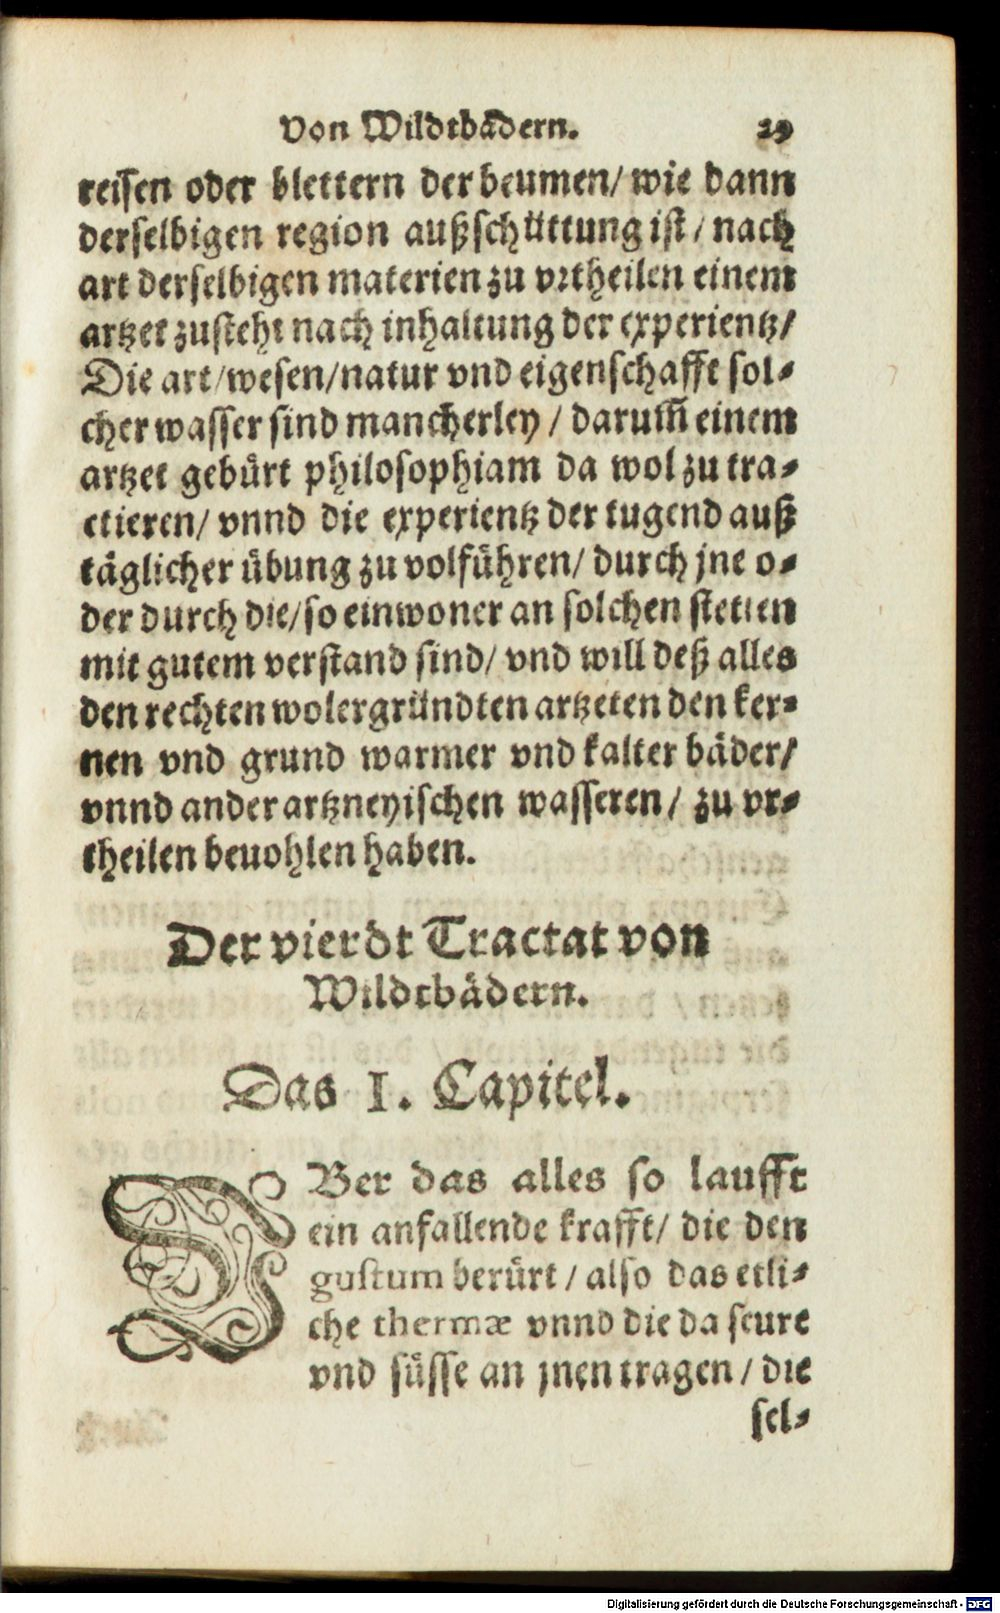 Von Wildtbädern. 29
reisen oder blettern der beumen/ wie dann
derselbigen region außschüttung ist/ nach
art derselbigen materien zu vrtheilen einem
artzet zusteht nach inhaltung der experientz/
Die art/wesen/natur vnd eigenschafft sol-
cher wasser sind mancherley / darum̃ einem
artzet gebürt philosophiam da wol zu tra-
ctieren/ vnnd die experientz der tugend auß
täglicher übung zu volführen/ durch jne o-
der durch die/so einwoner an solchen stetten
mit gutem verstand sind/ vnd will deß alles
den rechten wolergründten artzeten den ker-
nen vnd grund warmer vnd kalter bäder/
vnnd ander artzneyischen wasseren/ zu vr-
theilen beuohlen haben.
Der vierdt Tractat von
Wildtbädern.
Das I. Capitel.
VBer das alles so laufft
ein anfallende krafft/ die den
gustum berürt / also das etli-
che thermæ vnnd die da seure
vnd süsse an jnen tragen / die
sel-
Digitalisierung gefördert durch die Deutsche Forschungsgemeinschaft - DFG